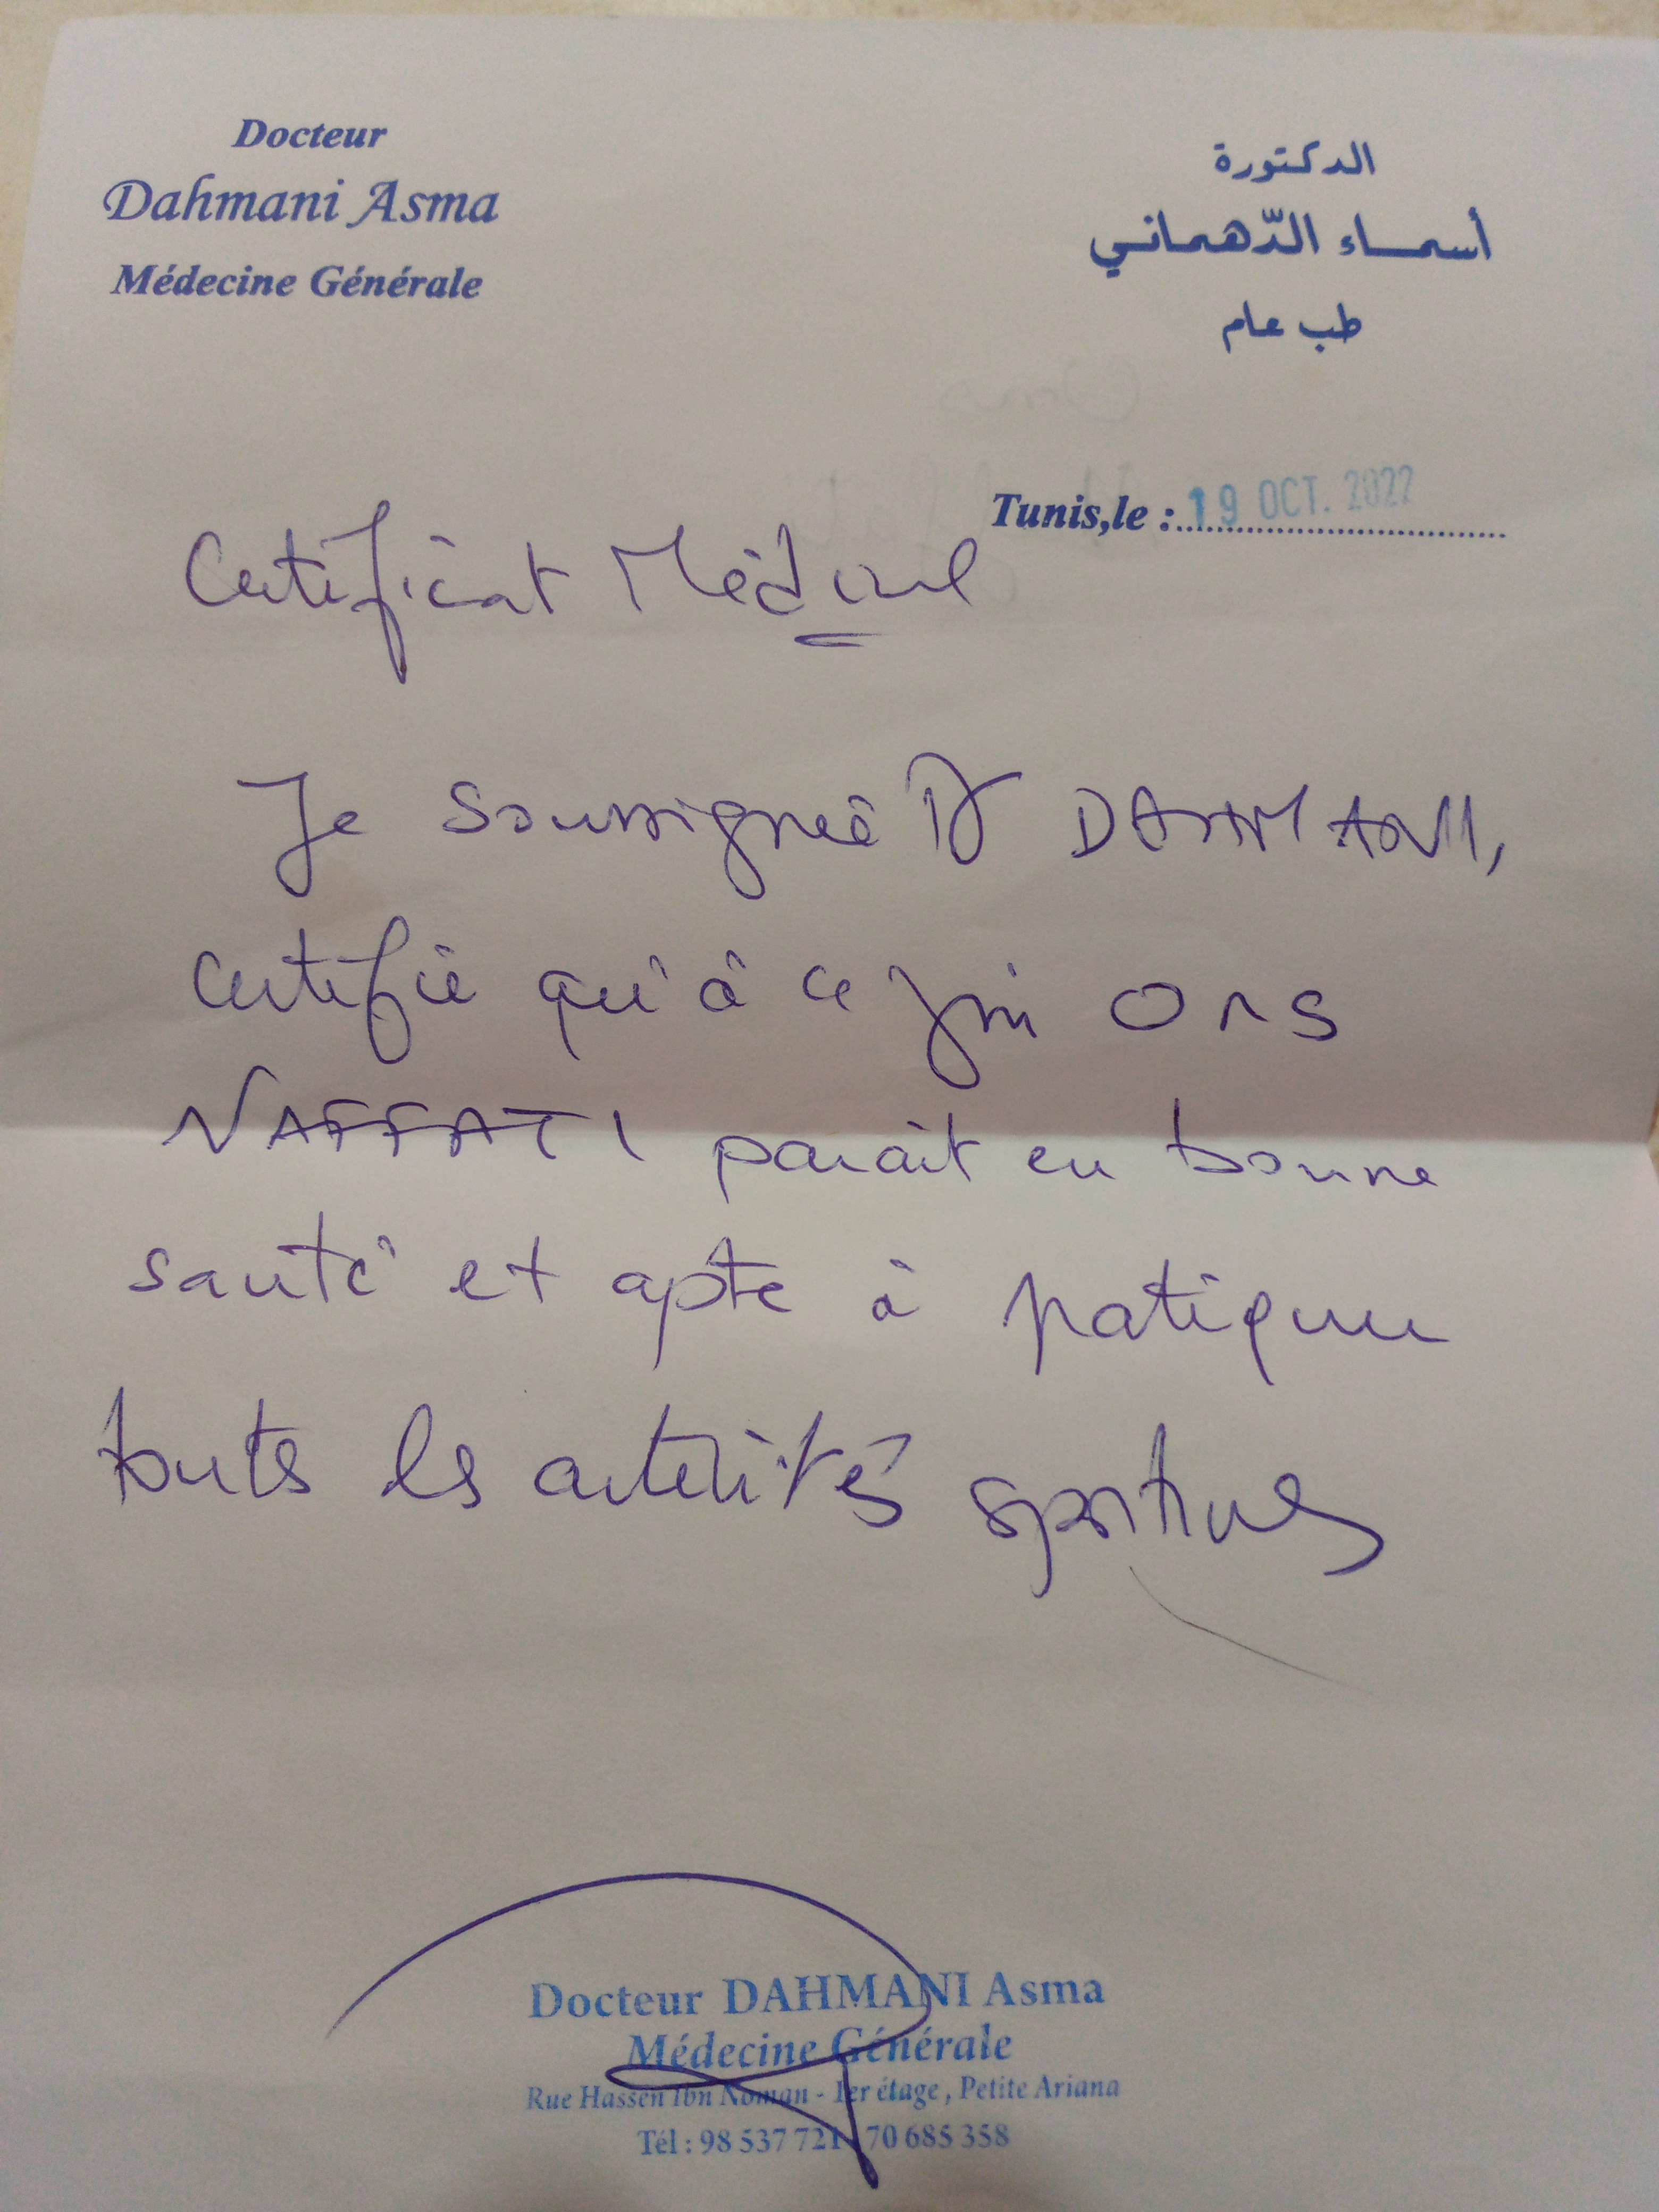 Docteur
Dahmani Asma
Médecine Générale
الدكتورة
أسماء الدّهماني
طب عام
Tunis,le : 19 OCT. 2022
Certificat Médical
Je soussignée Dr DAHMANI,
certifie qu'à ce jour Ons
NAFFATI parait en bonne
santé et apte à pratiquer
toutes les activités sportives
Docteur DAHMANI Asma
Médecine Générale
Rue Hassen Ibn Noman - 1er étage, Petite Ariana
Tél : 98 537 721 70 685 358